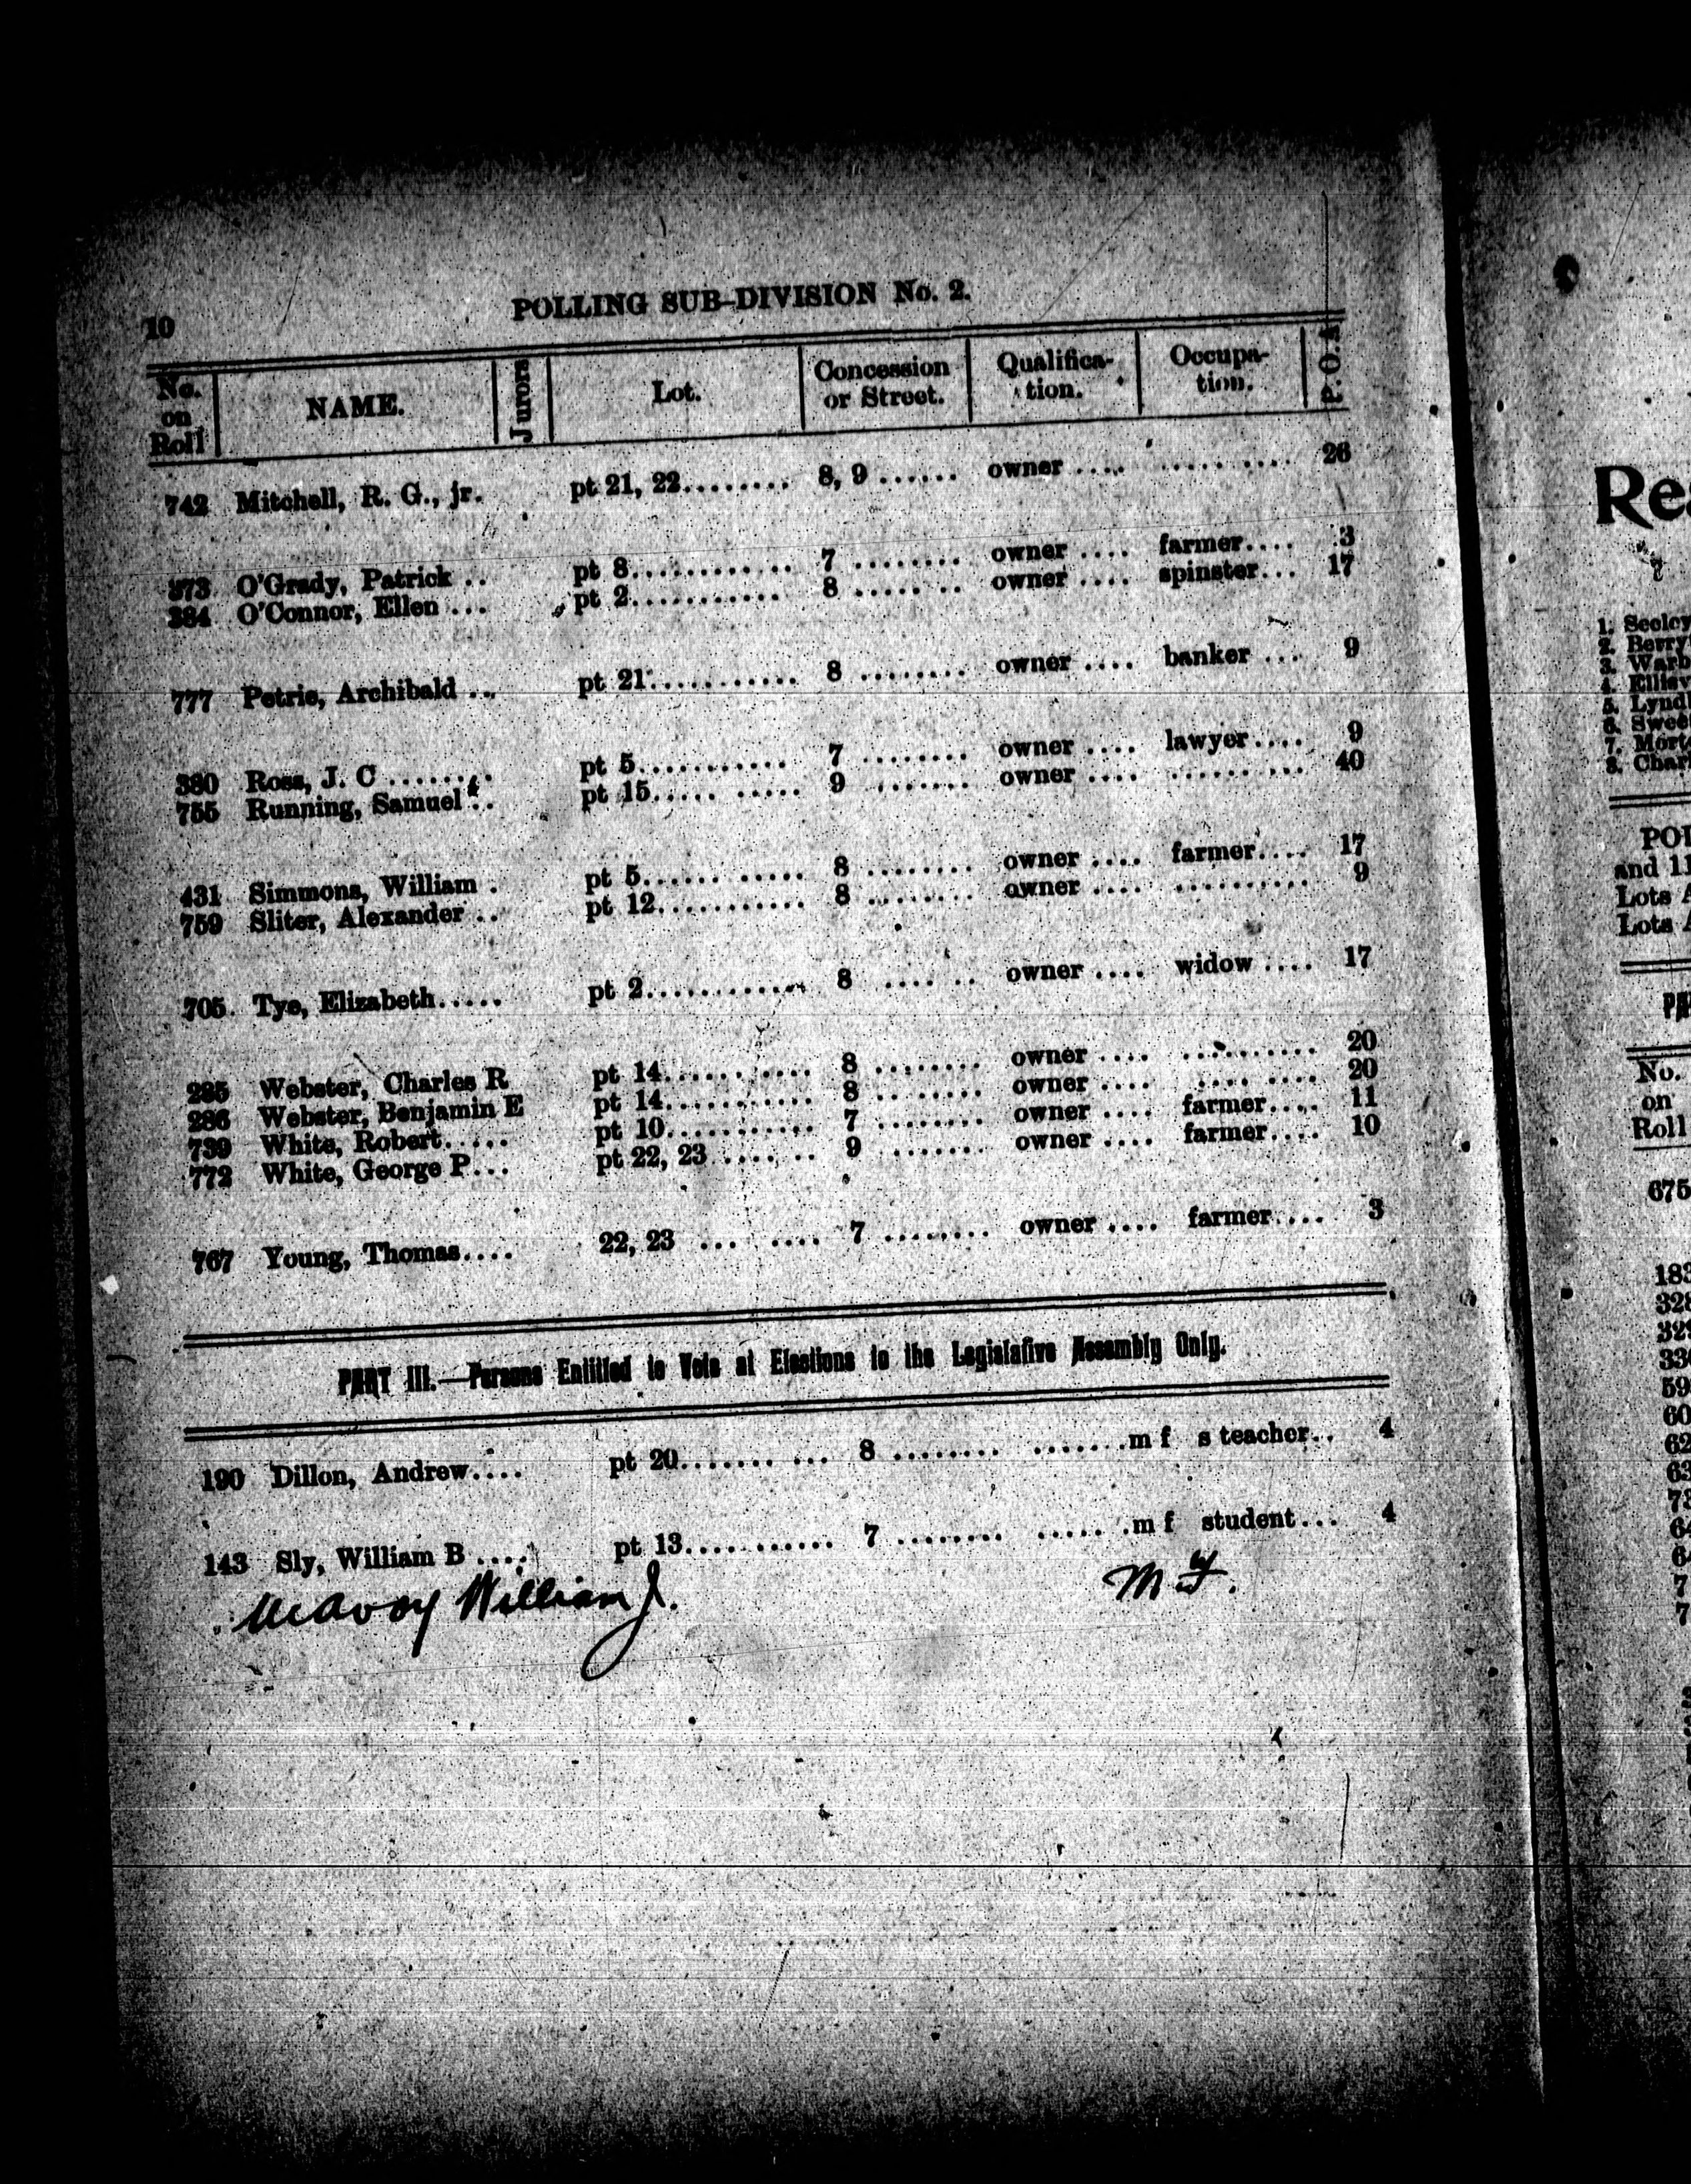 10
POLLING SUB-DIVISION No. 2.
No. on Roll NAME. Jurors Lot. Concession or Street. Qualifica-tion. Occupa-tion. P. O. A
742 Mitchell, R. G., jr. pt 21, 22........ 8, 9 ...... owner .... ..... .... 26
373 O'Grady, Patrick .. pt 8............ 7 ........ owner .... farmer.... 3
384 O'Connor, Ellen ... pt 2........... 8 ..... .. owner .... spinster... 17
777 Petrie, Archibald ... pt 21........... 8 ........ owner .... banker ... 9
380 Ross, J. C ........ pt 5........... 7 ........ owner .... lawyer.... 9
755 Running, Samuel .. pt 15..... ..... 9 ....... owner .... ...... ... 40
431 Simmons, William . pt 5...... ..... 8 ........ owner .... farmer.... 17
759 Sliter, Alexander .. pt 12........... 8 ........ owner .... .......... 9
705 Tye, Elizabeth..... pt 2............ 8 .... .. owner .... widow .... 17
285 Webster, Charles R pt 14........... 8 ........ owner .... .......... 20
286 Webster, Benjamin E pt 14........... 8 ........ owner .... .... .... 20
739 White, Robert..... pt 10........... 7 ........ owner .... farmer.... 11
772 White, George P... pt 22, 23 ..... .. 9 ....... owner .... farmer.... 10
767 Young, Thomas.... 22, 23 ... .... 7 ........ owner .... farmer.... 3
PART III.—Persons Entitled to Vote at Elections to the Legislative Assembly Only.
190 Dillon, Andrew.... pt 20....... ... 8 ........ .......m f s teacher.. 4
143 Sly, William B .... pt 13........... 7 ........ ..... .m f student... 4
McAvoy William J. M.F.
Rea
1. Seeley
2. Berry
3. Warb
4. Ellis
5. Lynd
6. Swee
7. Mort
8. Char
and 11
Lots A
Lots A
No.
on
Roll
675